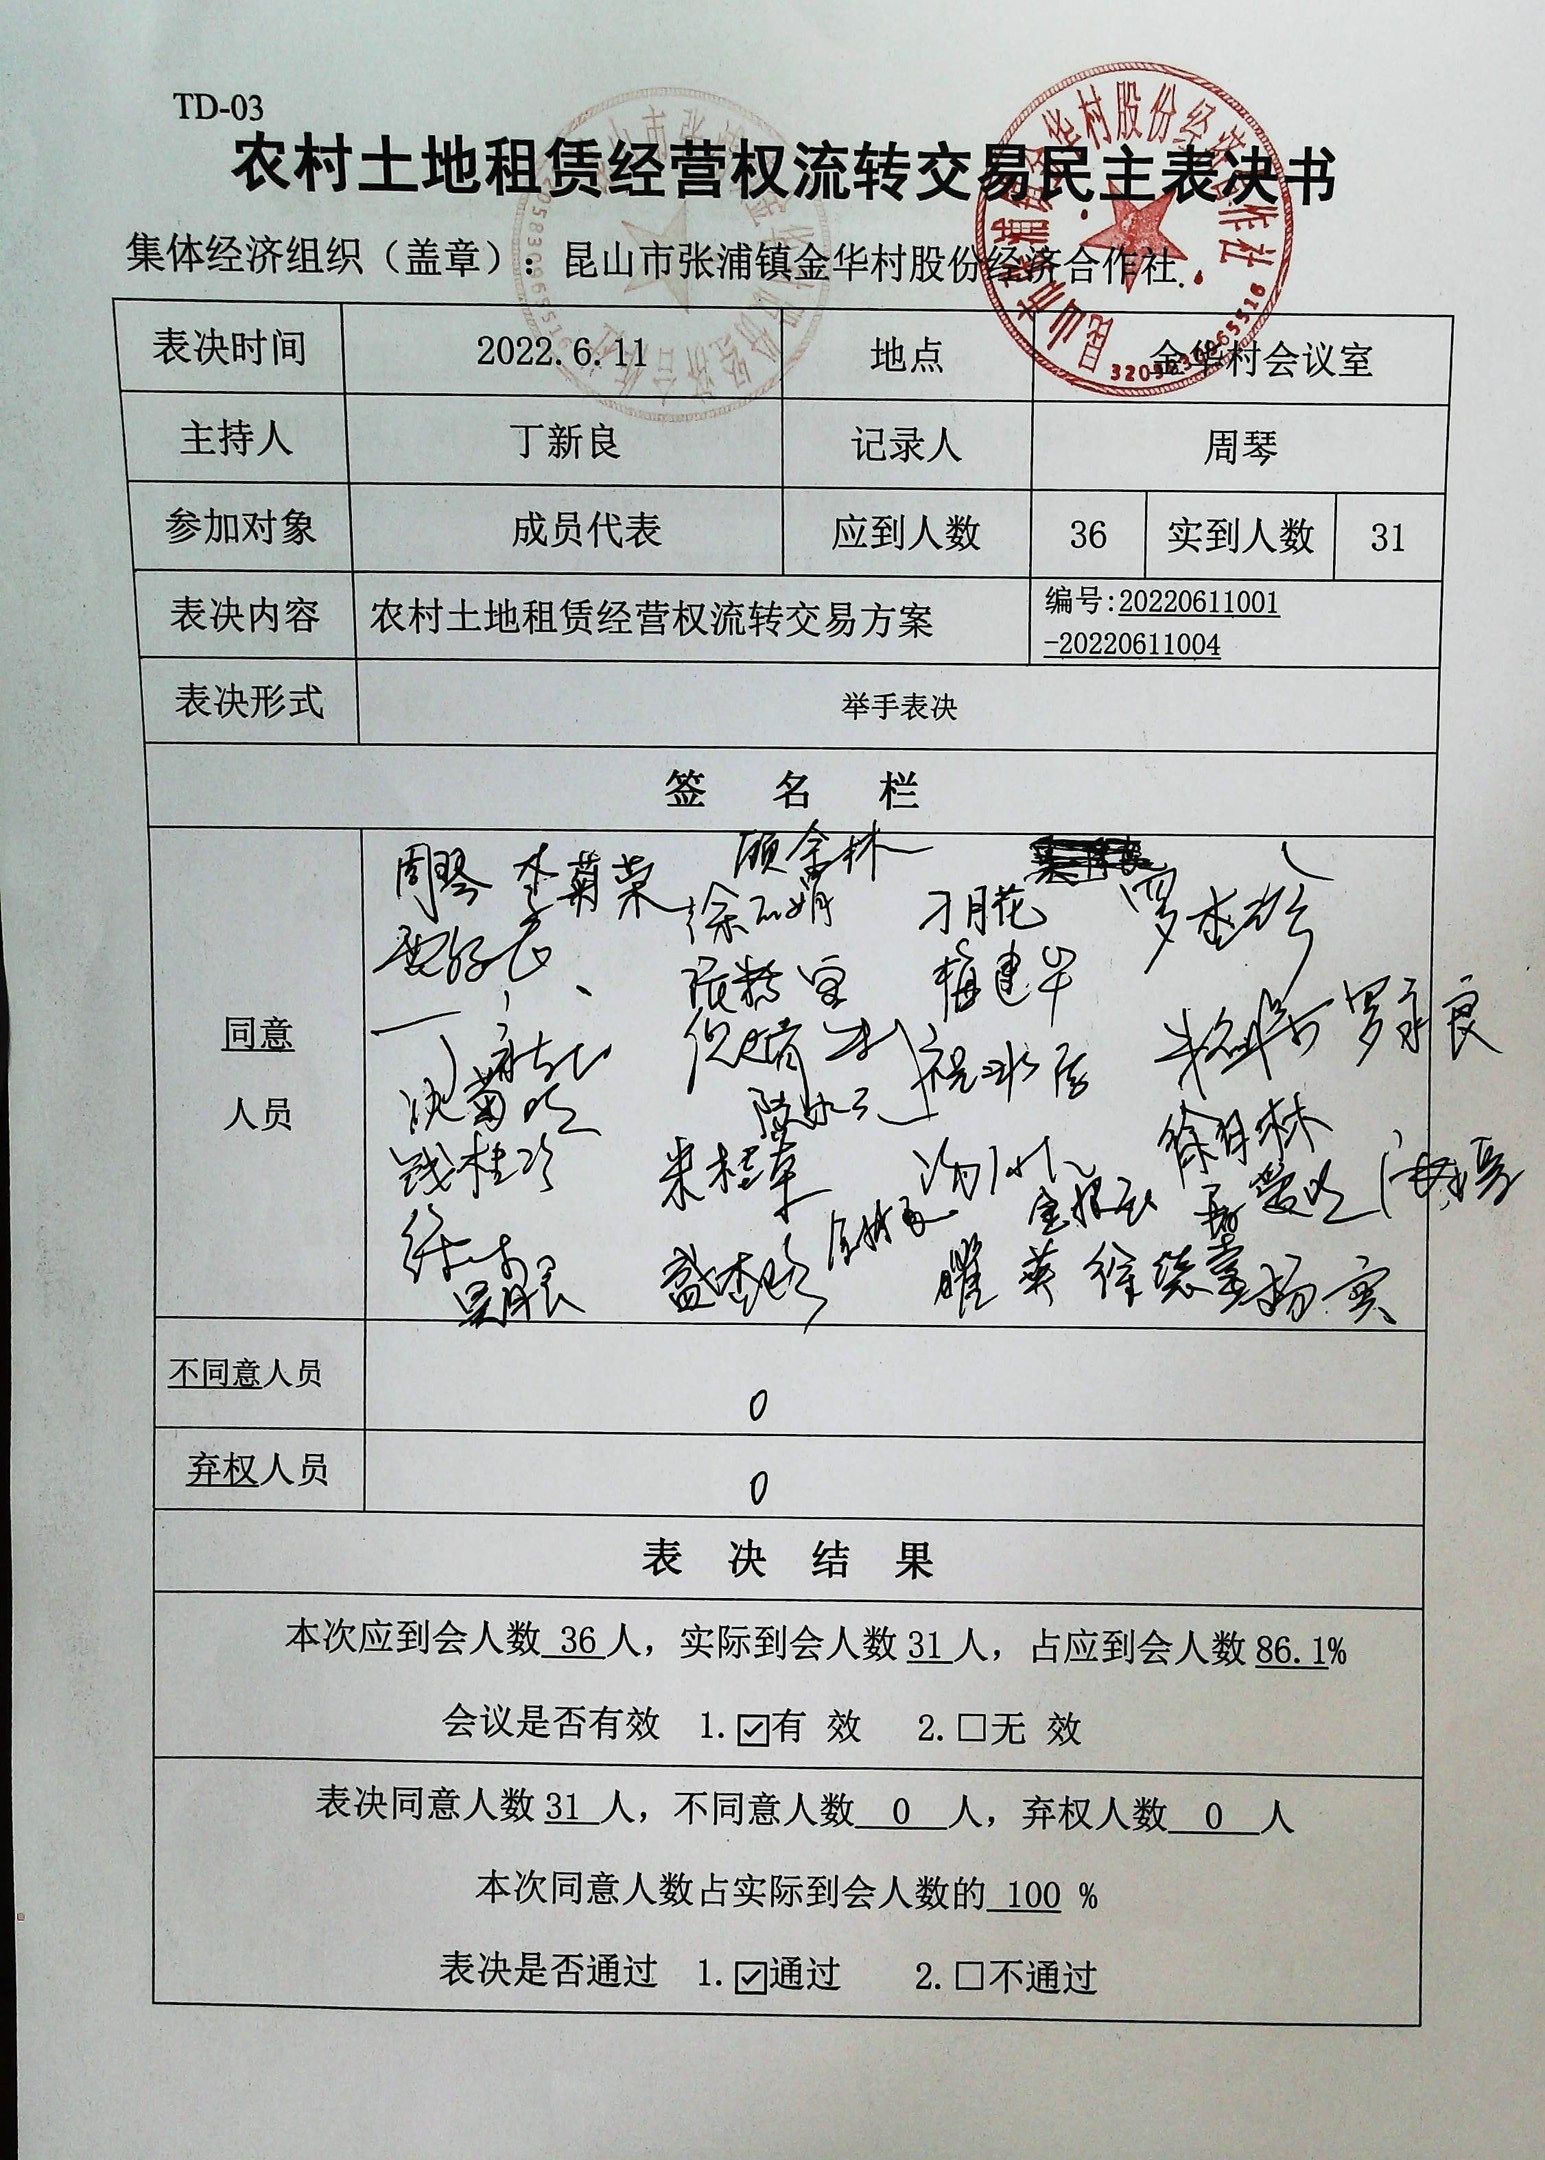 TD-03
农村土地租赁经营权流转交易民主表决书
集体经济组织（盖章）：昆山市张浦镇金华村股份经济合作社
昆山市张浦镇金华村股份经济合作社
表决时间 2022.6.11 地点 金华村会议室
主持人 丁新良 记录人 周琴
参加对象 成员代表 应到人数 36 实到人数 31
表决内容 农村土地租赁经营权流转交易方案 编号:20220611001
-20220611004
表决形式 举手表决
签 名 栏
同意
人员
周琴 李菊荣 顾金林
刁月花
梅建华
罗永良
沈菊明
钱桂珍 朱桂草 徐月林
杨宝
不同意人员 0
弃权人员 0
表 决 结 果
本次应到会人数 36 人，实际到会人数 31 人，占应到会人数 86.1%
会议是否有效 1.☑有 效 2.□无 效
表决同意人数 31 人，不同意人数 0 人，弃权人数 0 人
本次同意人数占实际到会人数的 100 %
表决是否通过 1.☑通过 2.□不通过